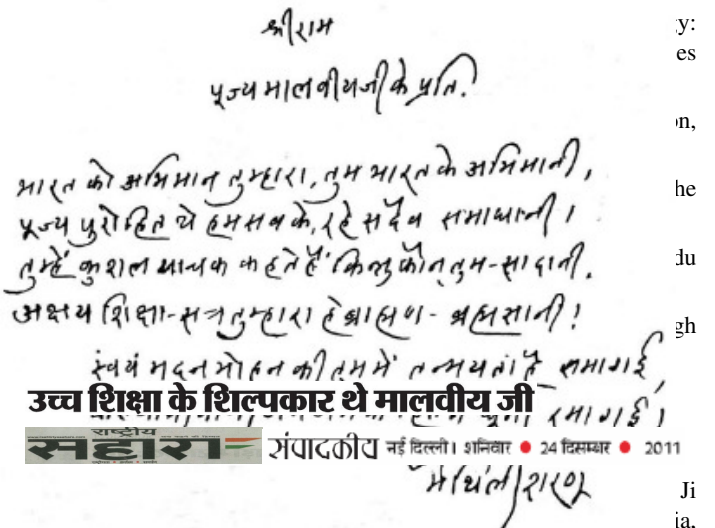 श्रीराम
पूज्य मालवीयजी के प्रति.
भारत को अभिमान तुम्हारा, तुम भारत के अभिमानी,
पूज्य पुरोहित थे हम सब के, रहे सदैव समाधानी ।
तुम्हें कुशल याचक कहते हैं किन्तु कौन तुम-सा दानी,
अक्षय शिक्षा-सत्र तुम्हारा हे ब्राह्मण - ब्रह्मज्ञानी !
स्वयं मदन मोहन की तुममें तन्मयता है समा गई,
उच्च शिक्षा के शिल्पकार थे मालवीय जी
रमा गई ।
राष्ट्रीय
सहारा
संपादकीय नई दिल्ली । शनिवार • 24 दिसम्बर • 2011
मैथिलीशरण
y:
es
on,
he
du
gh
Ji
ia,